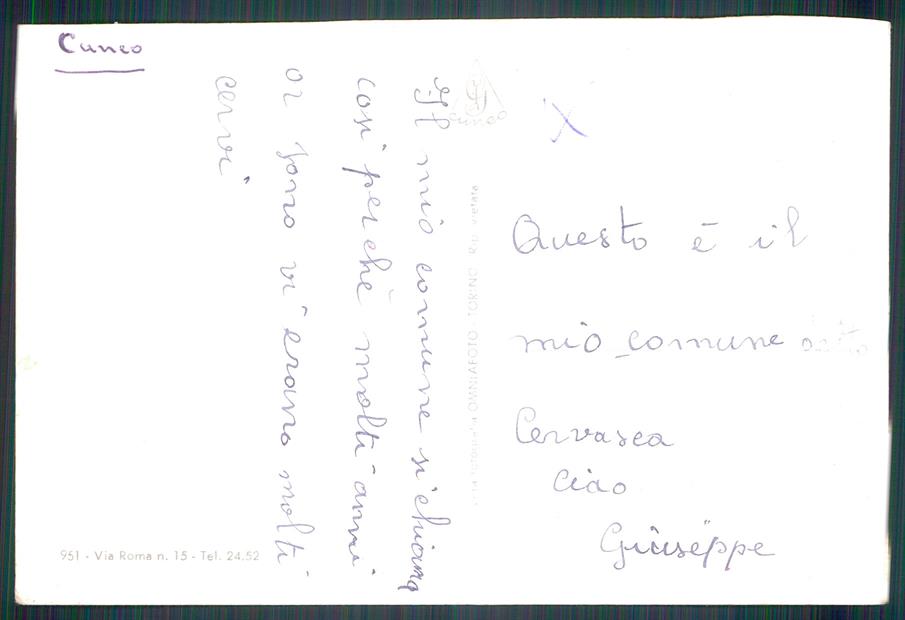 Cuneo
Il mio comune si chiama
cosi perchè molti anni
or sono vi erano molti
cervi
CUNEO
X
Questo è il
mio comune
Cervasca
Ciao
Giuseppe
fotografia OMNIAFOTO - TORINO Rip. vietata
951 - Via Roma n. 15 - Tel. 24.52